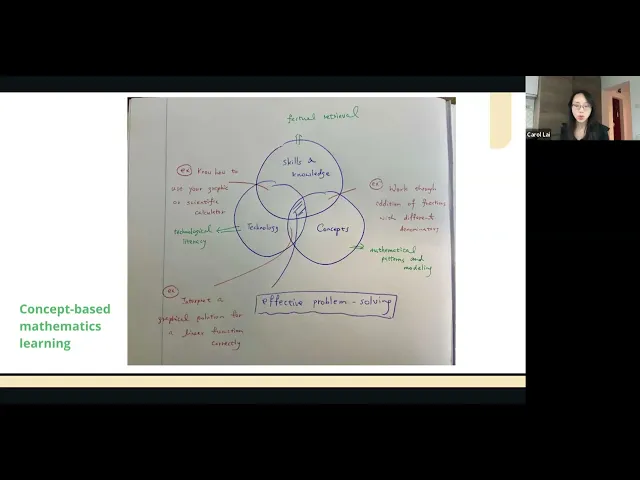 factual retrieval
skills &
knowledge
ex Know how to
use your graphic
or scientific
calculator
technological
literacy
Technology
Concepts
ex Work through
addition of fractions
with different
denominators
mathematical
patterns and
modeling
ex Interpret a
graphical solution for
a linear function
correctly
effective problem-solving
Concept-based
mathematics
learning
Carol Lai